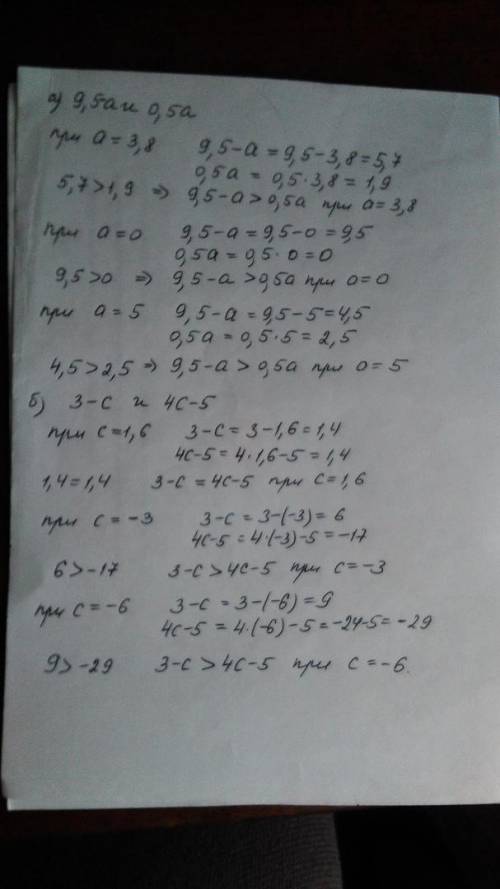 а) 9,5а и 0,5а
при а = 3,8 9,5-а = 9,5-3,8 = 5,7
0,5а = 0,5·3,8 = 1,9
5,7>1,9 ⇒ 9,5-а > 0,5а при а=3,8
при а=0 9,5-а = 9,5-0 = 9,5
0,5а = 0,5·0=0
9,5>0 ⇒ 9,5-а >0,5а при а=0
при а = 5 9,5-а = 9,5-5=4,5
0,5а = 0,5·5 = 2,5
4,5>2,5 ⇒ 9,5-а > 0,5а при а = 5
б) 3-с и 4с-5
при с=1,6 3-с = 3-1,6=1,4
4с-5 = 4·1,6-5 = 1,4
1,4=1,4 3-с = 4с-5 при с=1,6
при с = -3 3-с = 3-(-3) = 6
4с-5 = 4·(-3)-5 = -17
6>-17 3-с>4с-5 при с=-3
при с= -6 3-с = 3-(-6) = 9
4с-5 = 4·(-6)-5 = -24-5 = -29
9> -29 3-с > 4с-5 при с = -6.